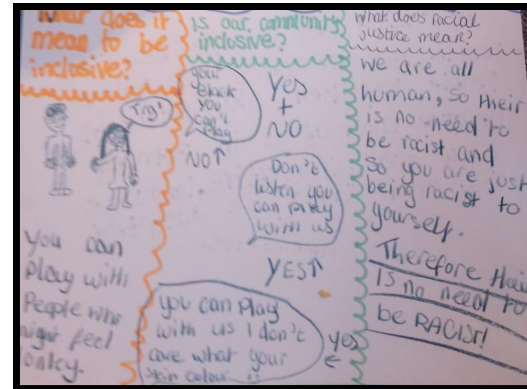 What does it
mean to be
inclusive?
Try!
You can
play with
People who
might feel
lonley.
is our community
inclusive?
your
black
you
can't
play
NO↑
Yes
+
NO
Don't
listen you
can play
with us
YES↑
you can play
with us I don't
care what your
skin colour is
yes
←
What does racial
justice mean?
we are all
human, so their
is no need to
be racist and
So you are just
being racist to
yourself.
Therefore
is no need to
be RACIST!